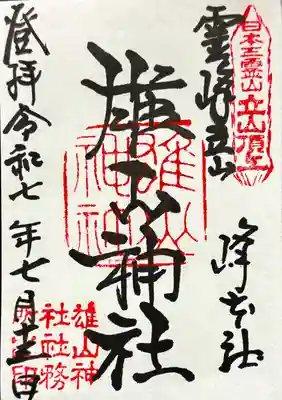 日本三霊山立山頂上
霊峰立山
峰本社
雄山神社
雄山神社
登拝令和七年七月十三日
雄山神
社社務